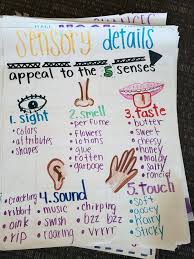 Sensory details
appeal to the 5 senses
1. sight
colors
attributes
shapes
2. smell
perfume
flowers
lotions
glue
rotten
garbage
3. taste
butter
sweet
cheesy
honey
moldy
salty
rancid
4. sound
crackling
ribbit
oink
rip
music
swish
roaring
chirping
bzz bzz
5. touch
soft
gooey
sticky